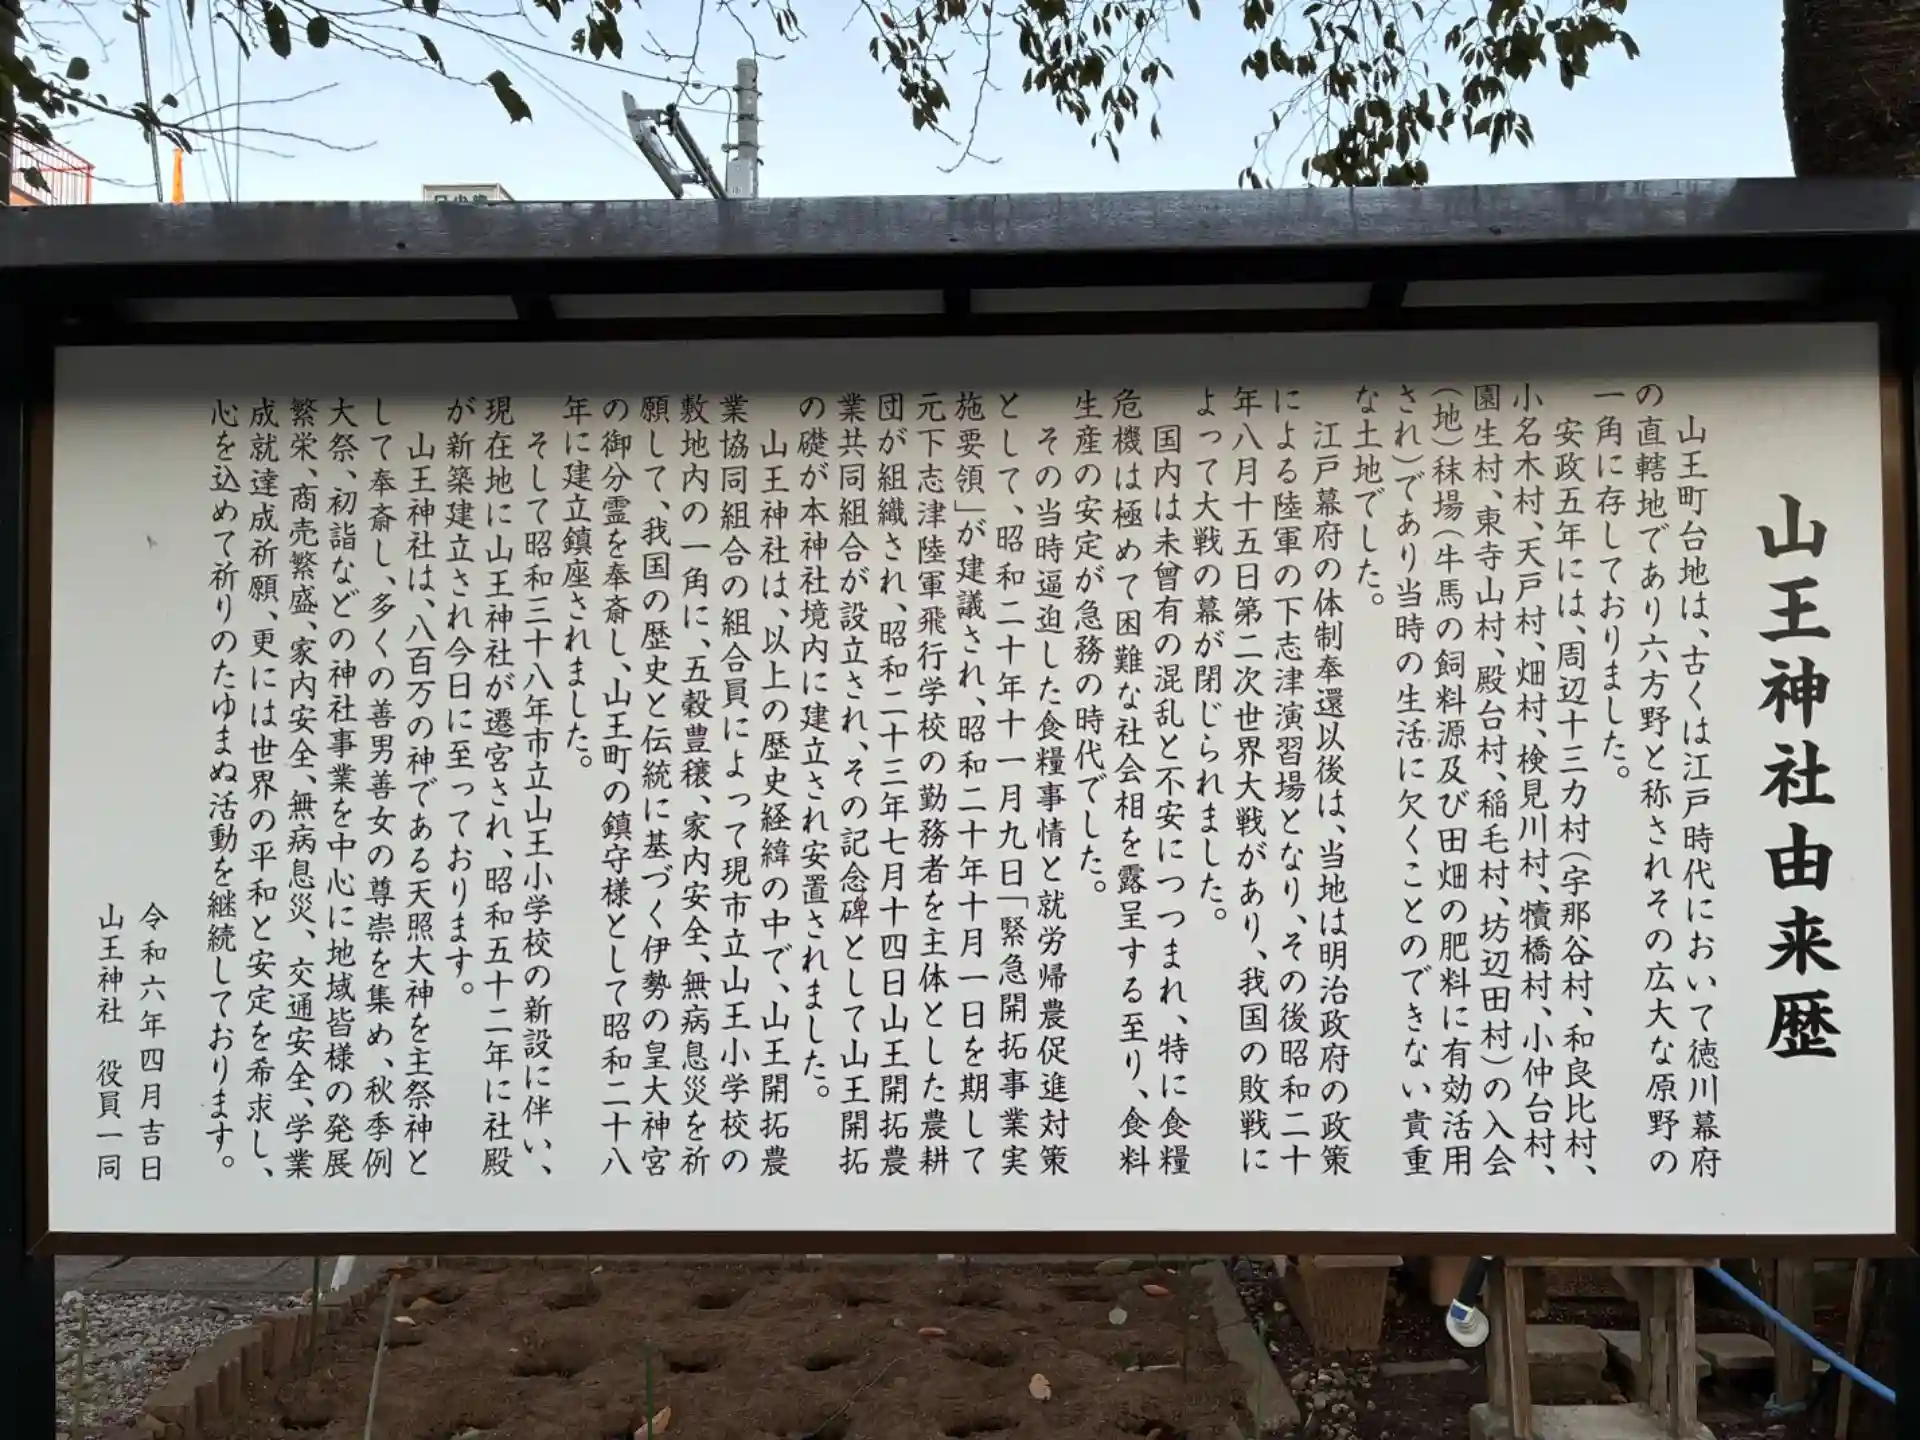 山王神社由来歴
山王町台地は、古くは江戸時代において徳川幕府
の直轄地であり六方野と称されその広大な原野の
一角に存しておりました。
安政五年には、周辺十三カ村（宇那谷村、和良比村、
小名木村、天戸村、畑村、検見川村、犢橋村、小仲台村、
園生村、東寺山村、殿台村、稲毛村、坊辺田村）の入会
（地）秣場（牛馬の飼料源及び田畑の肥料に有効活用
され）であり当時の生活に欠くことのできない貴重
な土地でした。
江戸幕府の体制奉還以後は、当地は明治政府の政策
による陸軍の下志津演習場となり、その後昭和二十
年八月十五日第二次世界大戦があり、我国の敗戦に
よって大戦の幕が閉じられました。
国内は未曾有の混乱と不安につつまれ、特に食糧
危機は極めて困難な社会相を露呈する至り、食料
生産の安定が急務の時代でした。
その当時逼迫した食糧事情と就労帰農促進対策
として、昭和二十年十一月九日「緊急開拓事業実
施要領」が建議され、昭和二十年十月一日を期して
元下志津陸軍飛行学校の勤務者を主体とした農耕
団が組織され、昭和二十三年七月十四日山王開拓農
業共同組合が設立され、その記念碑として山王開拓
の礎が本神社境内に建立され安置されました。
山王神社は、以上の歴史経緯の中で、山王開拓農
業協同組合の組合員によって現市立山王小学校の
敷地内の一角に、五穀豊穣、家内安全、無病息災を祈
願して、我国の歴史と伝統に基づく伊勢の皇大神宮
の御分霊を奉斎し、山王町の鎮守様として昭和二十八
年に建立鎮座されました。
そして昭和三十八年市立山王小学校の新設に伴い、
現在地に山王神社が遷宮され、昭和五十二年に社殿
が新築建立され今日に至っております。
山王神社は、八百万の神である天照大神を主祭神と
して奉斎し、多くの善男善女の尊崇を集め、秋季例
大祭、初詣などの神社事業を中心に地域皆様の発展
繁栄、商売繁盛、家内安全、無病息災、交通安全、学業
成就達成祈願、更には世界の平和と安定を希求し、
心を込めて祈りのたゆまぬ活動を継続しております。
令和六年四月吉日
山王神社　役員一同